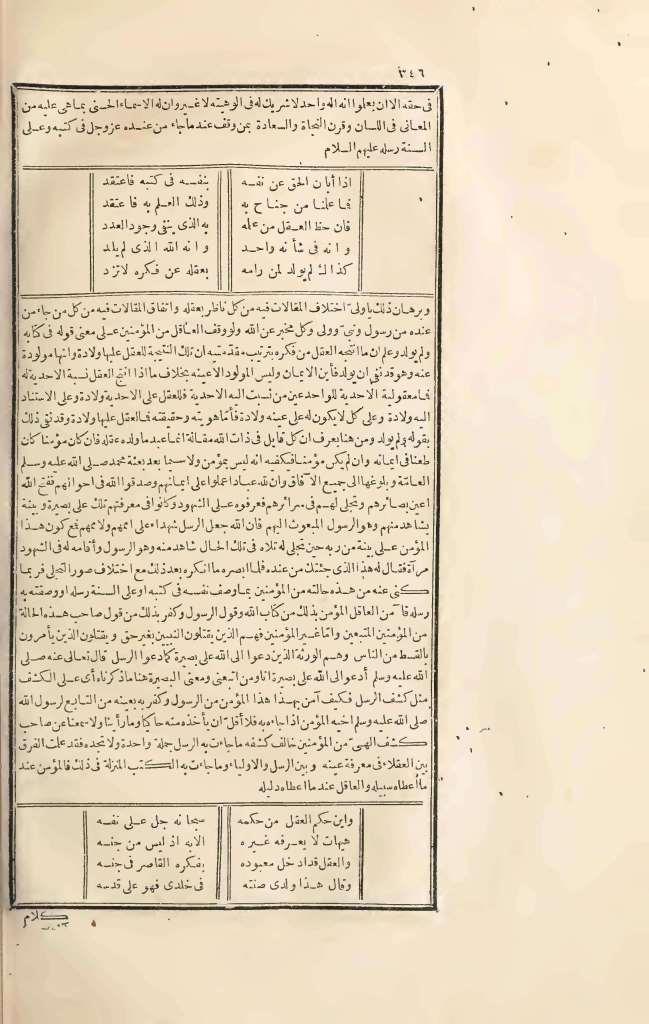 ٣٤٦
فى حقه الا ان يعلموا انه اله واحد لا شريك له فى الوهيته لا غير وان له الاسماء الحسنى بما هى عليه من
المعانى فى اللسان وقرن النجاة والسعادة بمن وقف عند ما جاء من عنده عز وجل فى كتبه وعلى
السنة رسله عليهم السلام
اذا أبان الحق عن نفسه بنفسه فى كتبه فاعتقد
فما علنا من جناح به وذلك العلم به فاعتقد
فان حظ العقل من علمه به الذى ينفى وجود العدد
وانه فى شأنه واحد وانه الله الذى لم يلد
كذاك لم يولد لمن رامه بعقله عن فكره لا تزد
وبرهان ذلك يا ولى اختلاف المقالات فيه من كل ناظر بعقله واتفاق المقالات فيه من كل من جاء من
عنده من رسول ونبى وولى وكل مخبر عن الله ولو وقف العاقل من المؤمنين على معنى قوله فى كتابه
ولم يولد وعلم ان ما انتجه العقل من فكره بترتيب مقدمتيه ان تلك النتيجة للعقل عليها ولادة وانها مولودة
عنه وهو قد نفى ان يولد فأين الايمان وليس المولود الا عينه بخلاف ما اذا انتج العقل نسبة الاحدية له
فما معقولية الاحدية للواحد عين من نسبت اليه الاحدية فللعقل على الاحدية ولادة وعلى الاستناد
اليه ولادة وعلى كل لا يكون له على عينه ولادة فأما هويته وحقيقته فما للعقل عليها ولادة وقد نفى ذلك
بقوله ولم يولد ومن هنا يعرف ان كل قائل فى ذات الله مقالة انما عبد ما ولده عقله فان كان مؤمنا كان
طعنا فى ايمانه وان لم يكن مؤمنا فيكفيه انه ليس بمؤمن ولا سيما بعد بعثة محمد صلى الله عليه وسلم
العامّة وبلوغها الى جميع الآفاق وان لله عبادا عملوا على ايمانهم وصدقوا الله فى احوالهم ففتح الله
اعين بصائرهم وتجلى لهم فى سرائرهم فعرفوه على الشهود وكانوا فى معرفتهم تلك على بصيرة وبينة
بشاهد منهم وهو الرسول المبعوث اليهم فان الله جعل الرسل شهداء على اممهم ولاممهم فمع كون هذا
المؤمن على بينة من ربه حين تجلى له تلاه فى تلك الحال شاهد منه وهو الرسول وأقامه له فى الشهود
مرآة فقال له هذا الذى جئتك من عنده فلما ابصره ما انكره بعد ذلك مع اختلاف صور التجلى فربما
كنى عنه من هذه حالته من المؤمنين بما وصف نفسه فى كتبه او على السنة رسله او وصفته به
رسله فآمن العاقل المؤمن بذلك من كتاب الله وقول الرسول وكفر بذلك من قول صاحب هذه الحالة
من المؤمنين المتبعين واما غير المؤمنين فهم الذين يقتلون النبيين بغير حق ويقتلون الذين يأمرون
بالقسط من الناس وهم الورثة الذين دعوا الى الله على بصيرة كما دعوا الرسل قال تعالى عنه صلى
الله عليه وسلم أدعو الى الله على بصيرة انا ومن اتبعنى ومعنى البصيرة هنا ما ذكرناه أى على الكشف
مثل كشف الرسل فكيف آمن بهذا هذا المؤمن من الرسول وكفر به بعينه من التابع لرسول الله
صلى الله عليه وسلم اخيه المؤمن اذا جاء به فلا أقل ان يأخذه منه حاكيا وما رأينا ولا سمعنا عن صاحب
كشف الهى من المؤمنين خالف كشفه ما جاءت به الرسل جملة واحدة ولا تجده فقد علت الفرق
بين العقلاء فى معرفة عينه وبين الرسل والاولياء وما جاءت به الكتب المنزلة فى ذلك فالمؤمن عند
ما أعطاه سبيله والعاقل عند ما اعطاه دليله
واين حكم العقل من حكمه سبحانه جل على نفسه
هيهات لا يعرفه غيره الا به اذ ليس من جنسه
والعقل قد ادخل معبوده بفكره القاصر فى جنسه
وقال هذا ولدى صنته فى خلدى فهو على قدسه
كلام